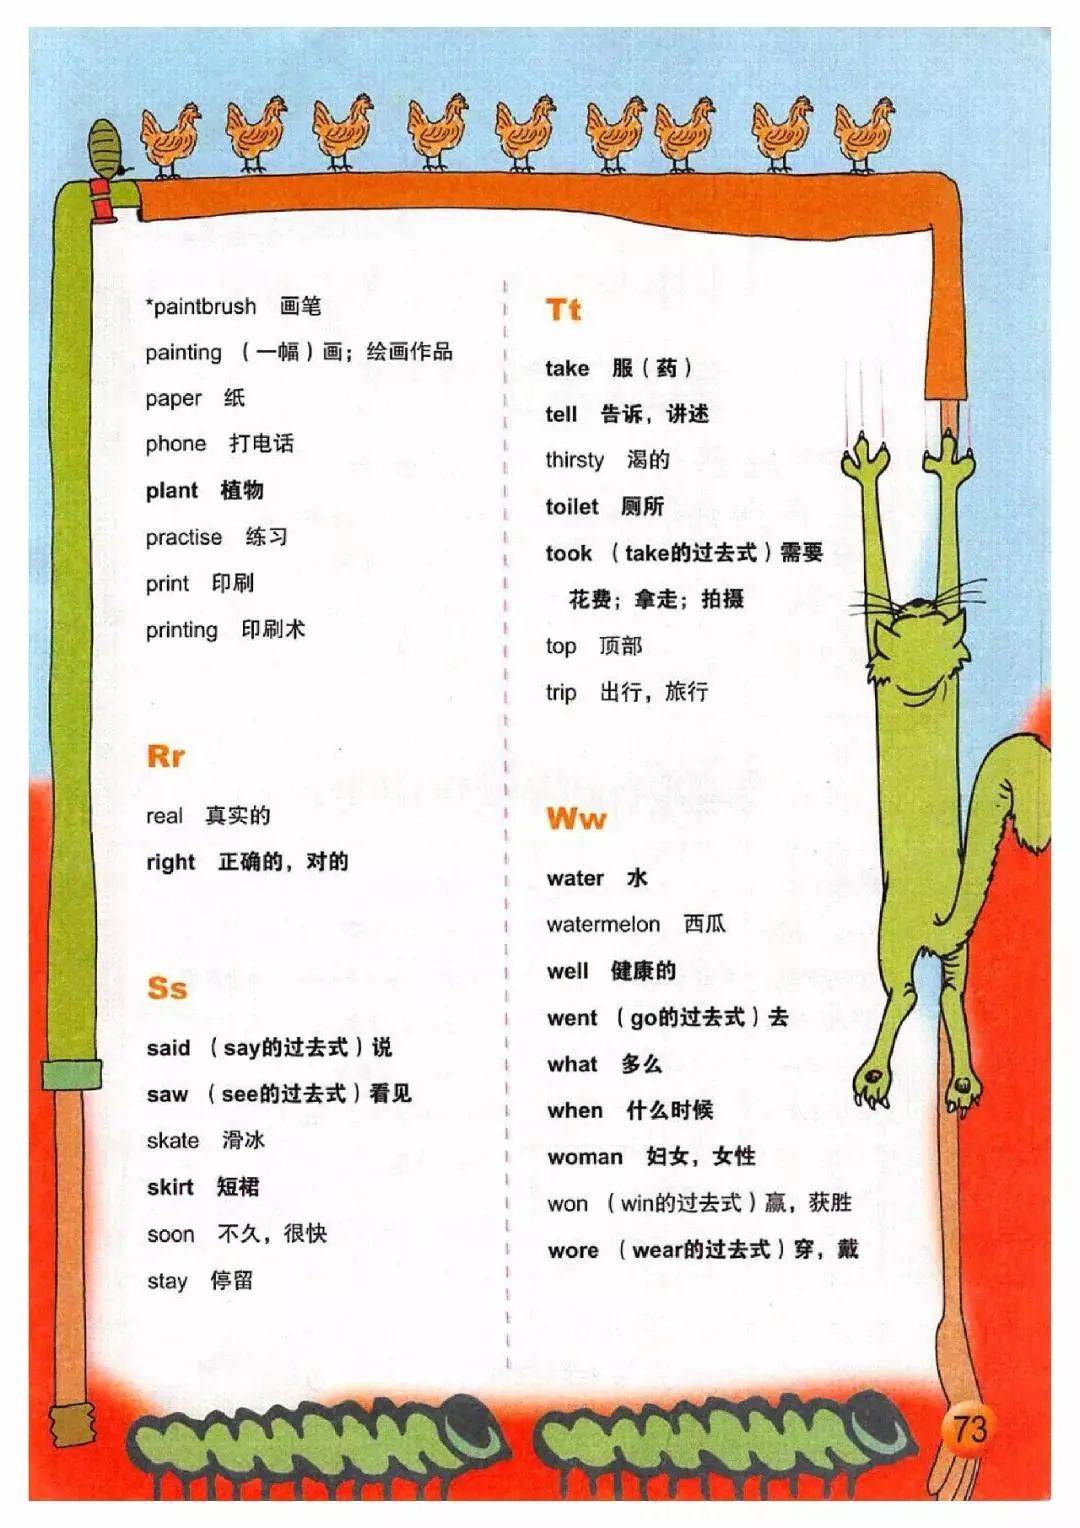 *paintbrush 画笔
painting （一幅）画；绘画作品
paper 纸
phone 打电话
plant 植物
practise 练习
print 印刷
printing 印刷术
Rr
real 真实的
right 正确的，对的
Ss
said （say的过去式）说
saw （see的过去式）看见
skate 滑冰
skirt 短裙
soon 不久，很快
stay 停留
Tt
take 服（药）
tell 告诉，讲述
thirsty 渴的
toilet 厕所
took （take的过去式）需要
花费；拿走；拍摄
top 顶部
trip 出行，旅行
Ww
water 水
watermelon 西瓜
well 健康的
went （go的过去式）去
what 多么
when 什么时候
woman 妇女，女性
won （win的过去式）赢，获胜
wore （wear的过去式）穿，戴
73